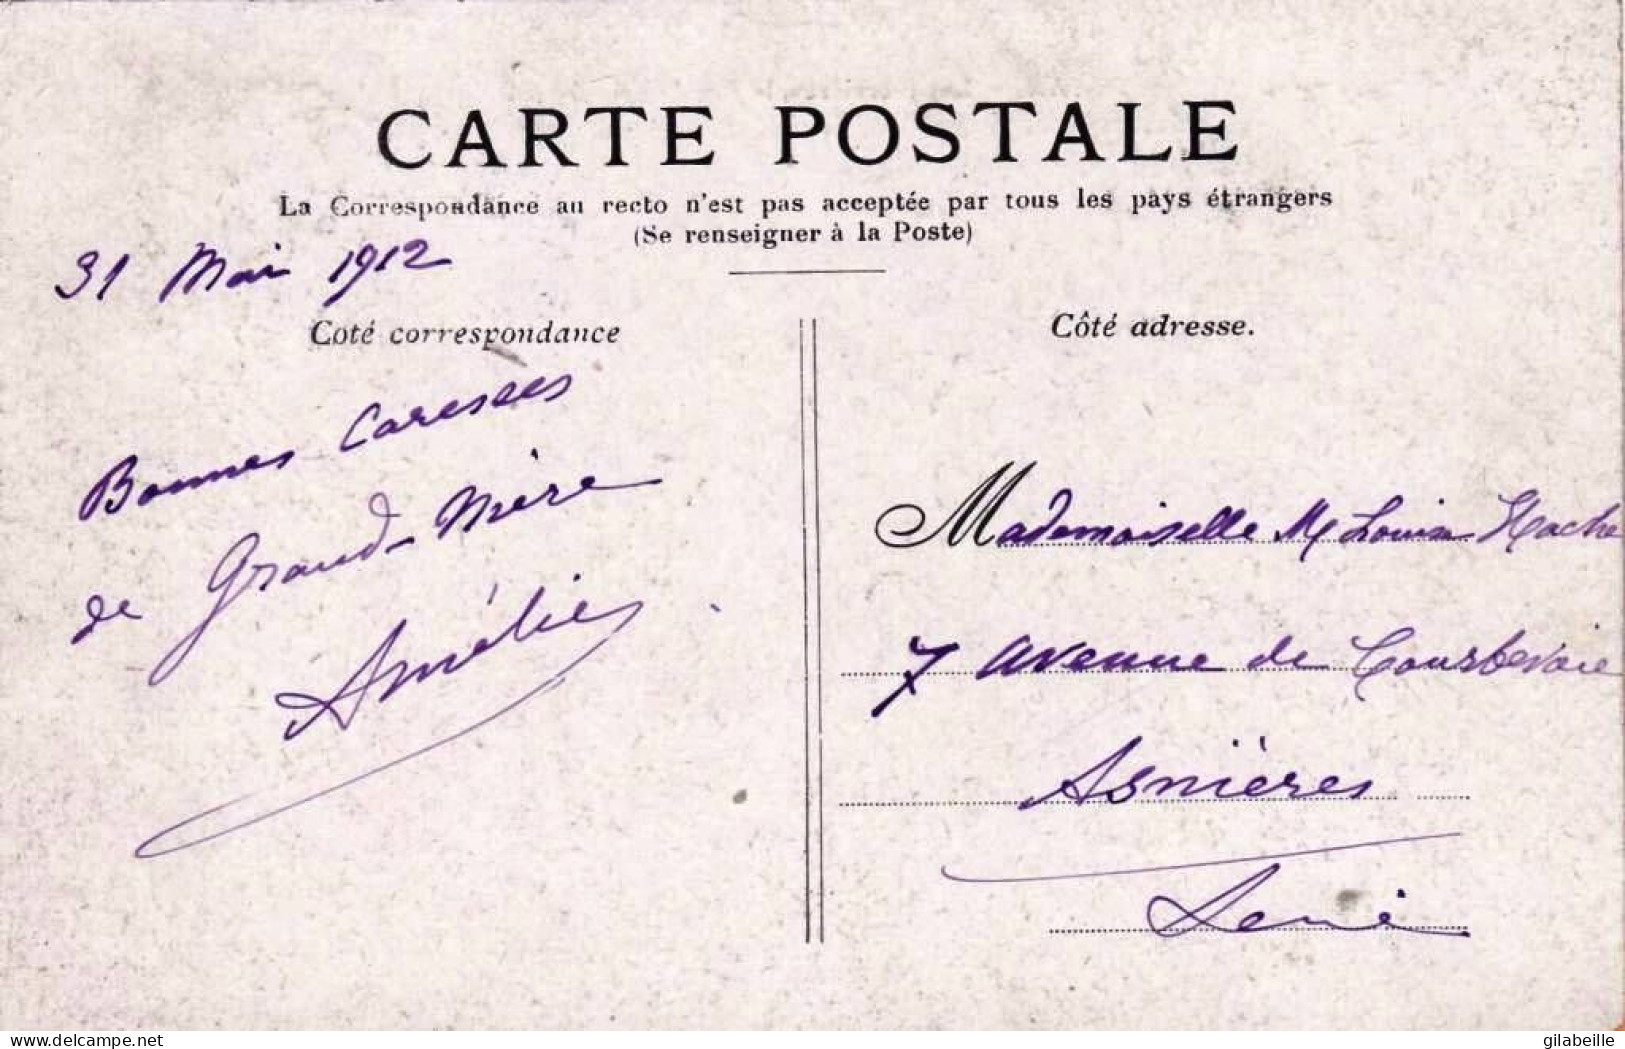 CARTE POSTALE
La Correspondance au recto n'est pas acceptée par tous les pays étrangers
(Se renseigner à la Poste)
31 Mai 1912
Coté correspondance
Bonnes Caresses
de Grand-Mère
Amélie
Côté adresse.
Mademoiselle M Louise Hache
7 avenue de Courbevoie
Asnières
Seine
www.delcampe.net
gilabeille